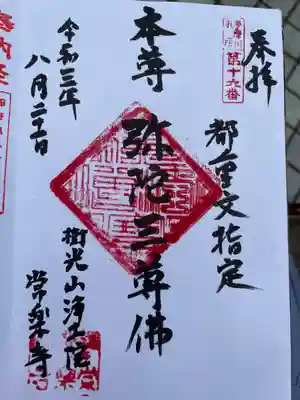 奉拝
多摩川
第十九番
都重文指定
本尊 弥陀三尊佛
樹光山浄土院
常楽寺
令和三年
八月